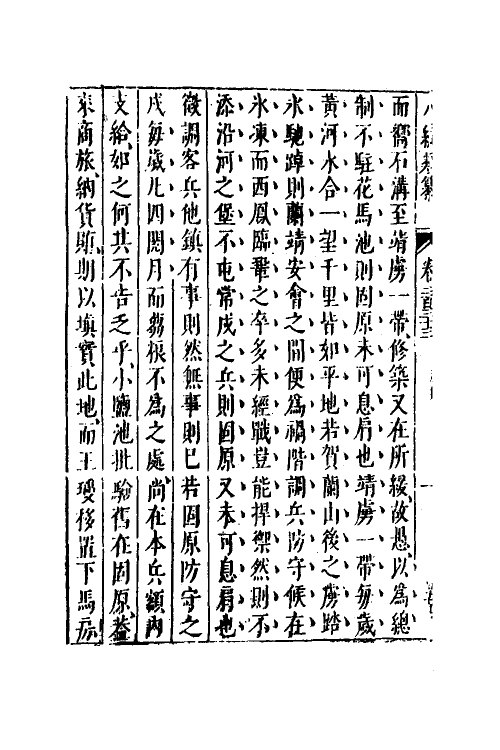 八編類纂　卷二百二十三
而嚮石溝至靖虜一帶修築又在所緩故愚以為總
制不駐花馬池則固原未可息肩也靖虜一帶每歲
黃河水合一望千里皆如平地若賀蘭山後之虜踏
氷馳踔則蘭靖安會之間便為禍階調兵防守候在
氷凍而西鳳臨鞏之卒多未經戰豈能捍禦然則不
添沿河之堡不屯常戍之兵則固原又未可息肩也
徵調客兵他鎮有事則然無事則已若固原防守之
戍每歲凡四閱月而芻粮不為之處尚在本兵額內
支給如之何其不告乏乎小鹽池批驗舊在固原葢
來商旅納貨賑期以填實此地而王瓊移置下馬房